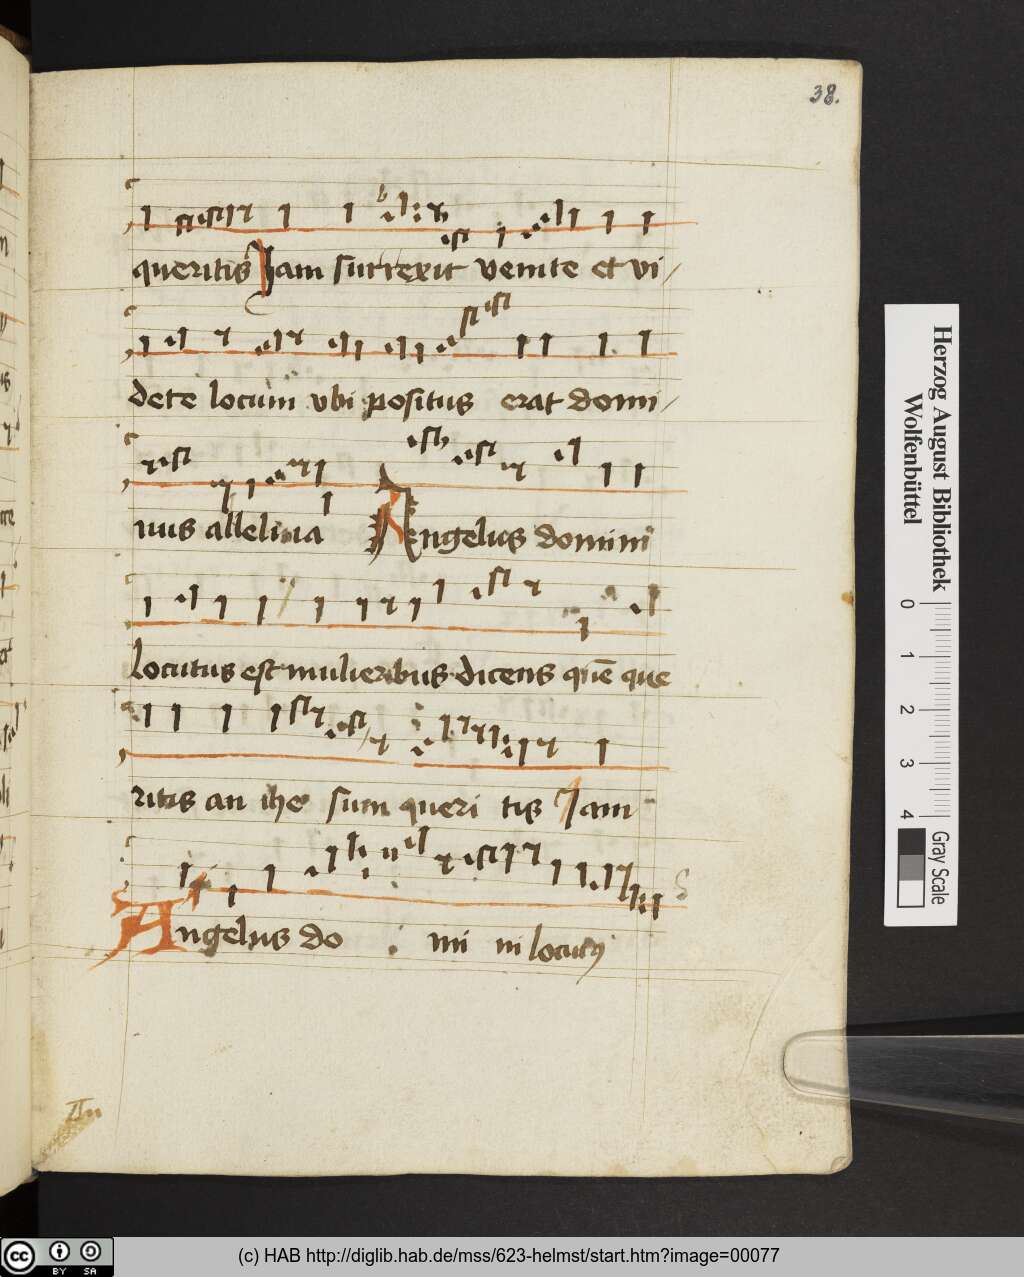 38.
queritis Jam surrexit venite et vi/
dete locum vbi positus erat domi/
nus alleluia Angelus domini
Locutus est mulieribus dicens quē que
ritis an ihe sum queri tis Jam
Angelus do mi ni locutꝰ
Herzog August Bibliothek
Wolfenbüttel
0 1 2 3 4
Gray Scale
cc BY SA
(c) HAB http://diglib.hab.de/mss/623-helmst/start.htm?image=00077